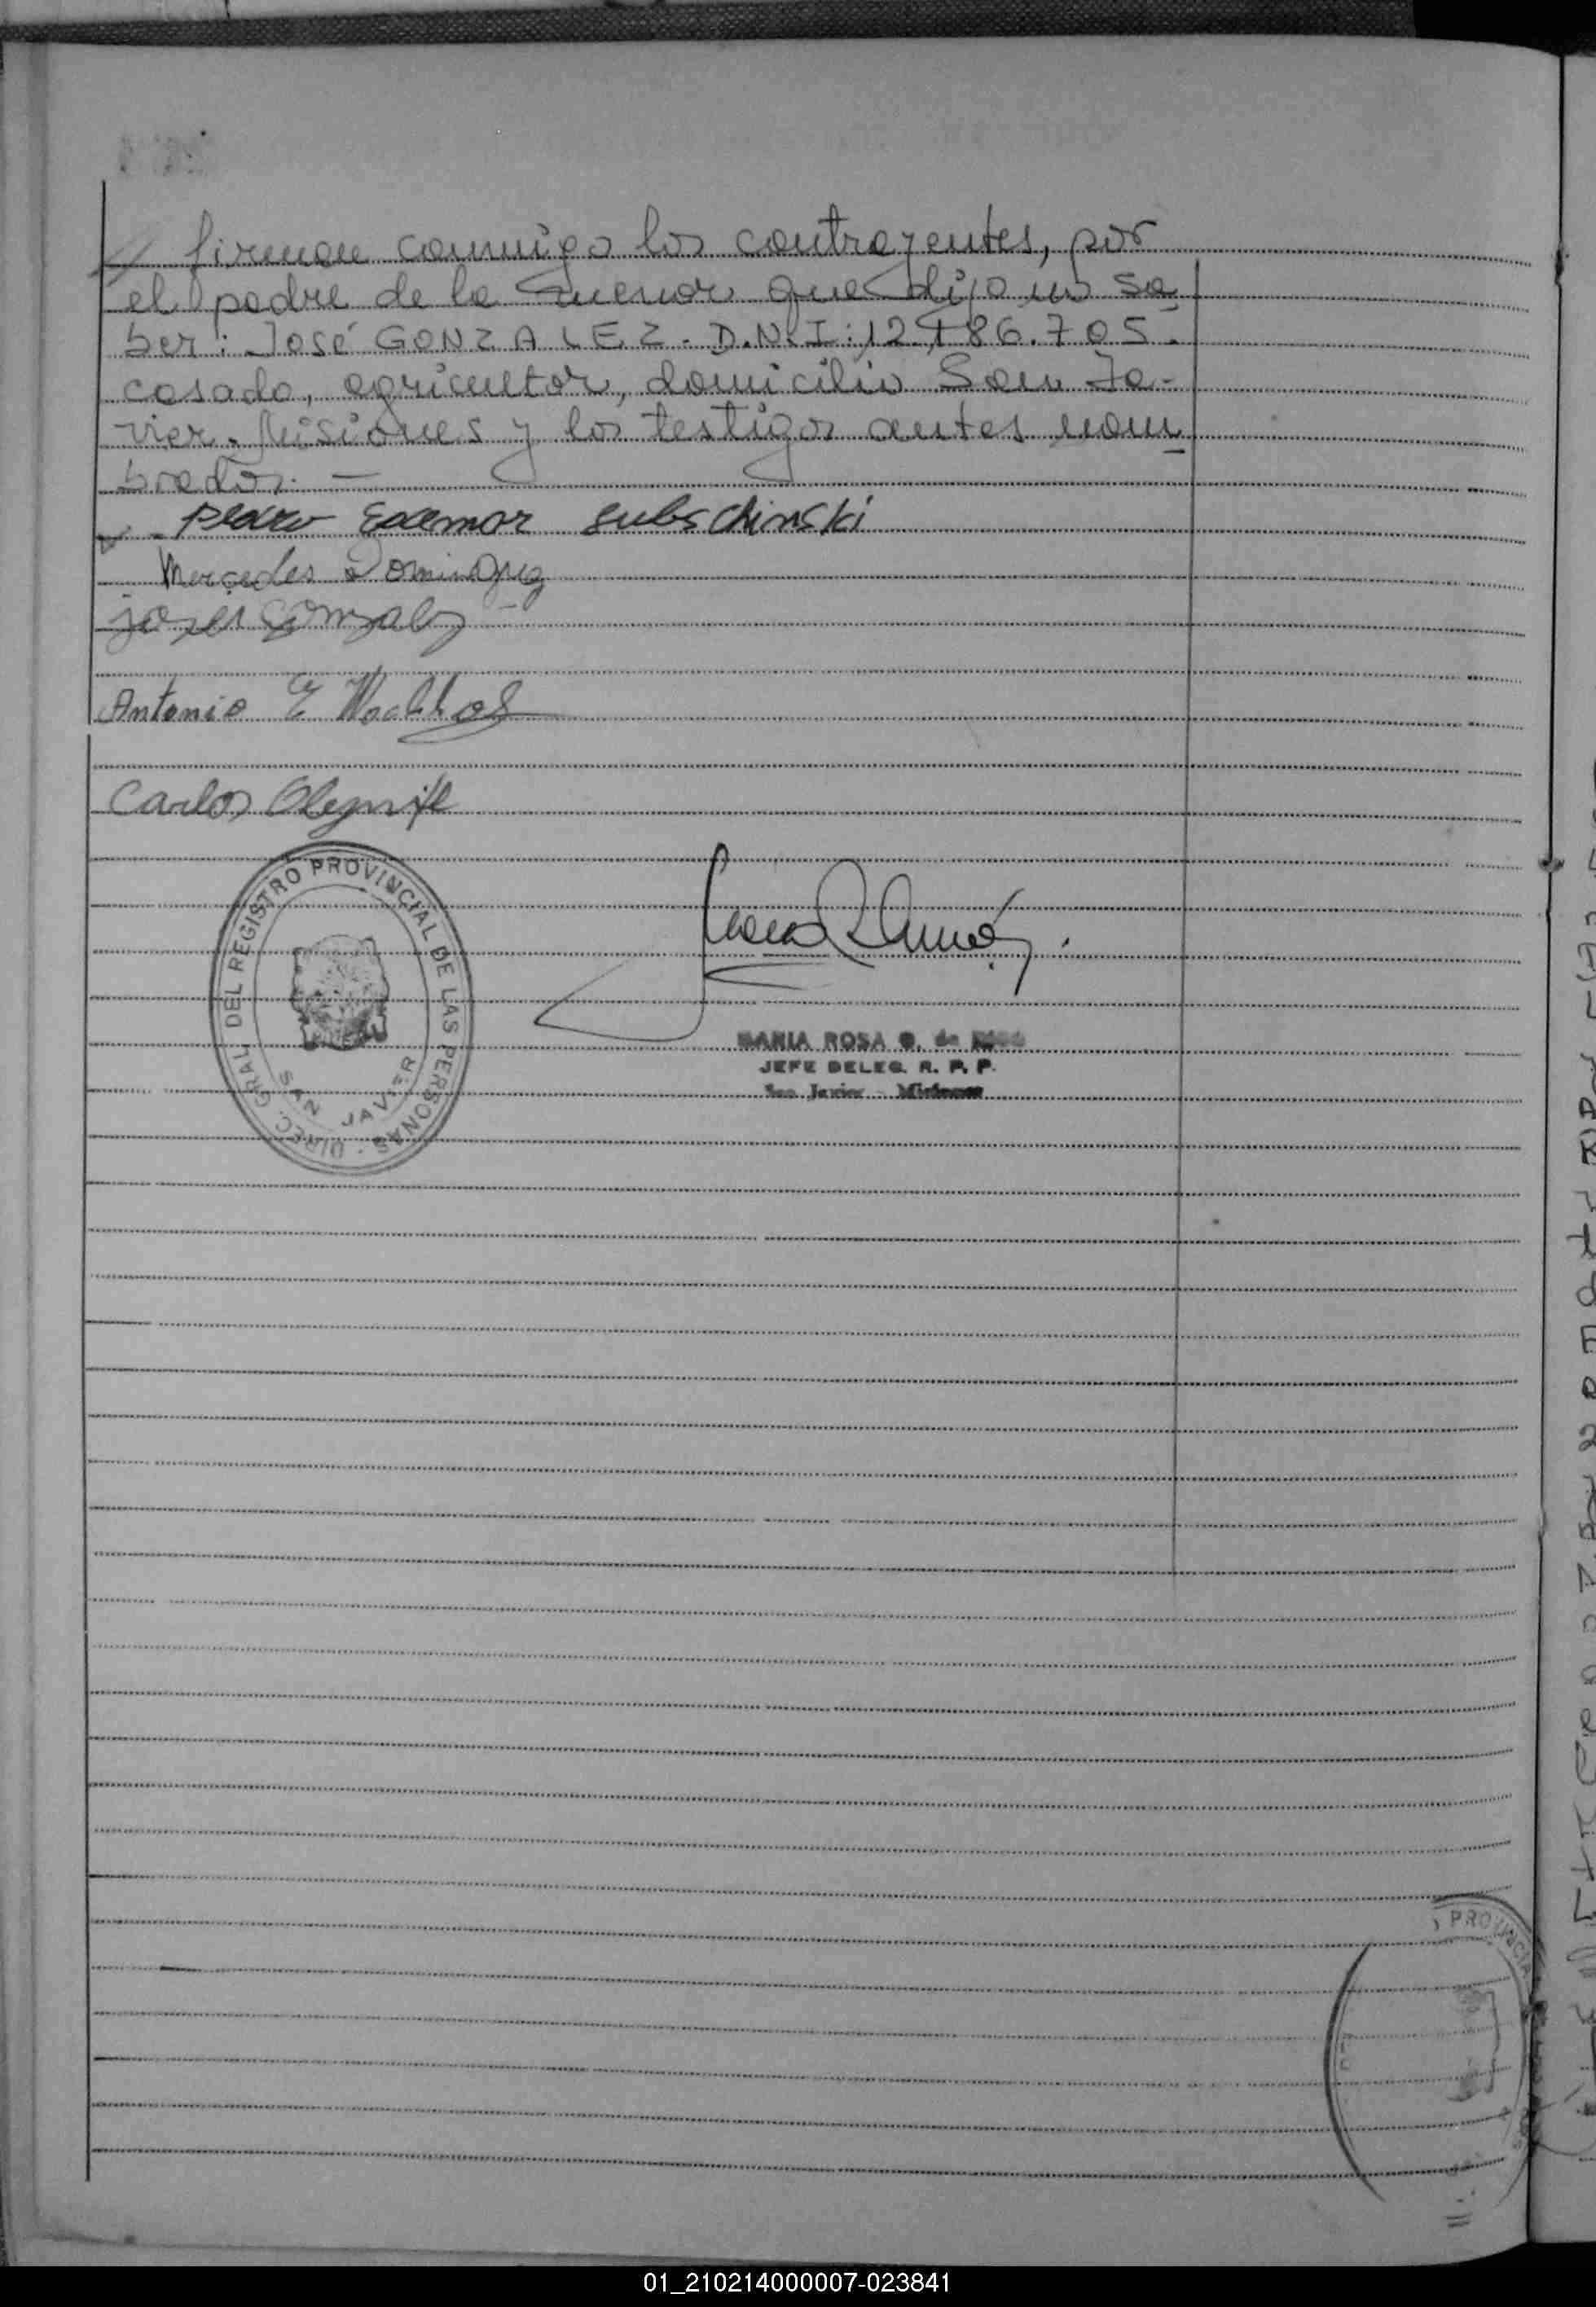 firman conmigo los contrayentes, por
el padre de la menor que dijo no sa
ber: José GONZALEZ. D.N.I:12.786.705.
casado, agricultor, domicilio San Ja-
vier. Misiones y los testigos antes nom
brados. —
Pedro subschinski
Mercedes Dominguez
jose Gonzalez
Antonio E
Carlos
DIREC. GRAL. DEL REGISTRO PROVINCIAL DE LAS PERSONAS
SAN JAVIER
MARIA ROSA de
JEFE DELEG. R. P. P.
San Javier - Misiones
PROVINCIA
01_210214000007-023841